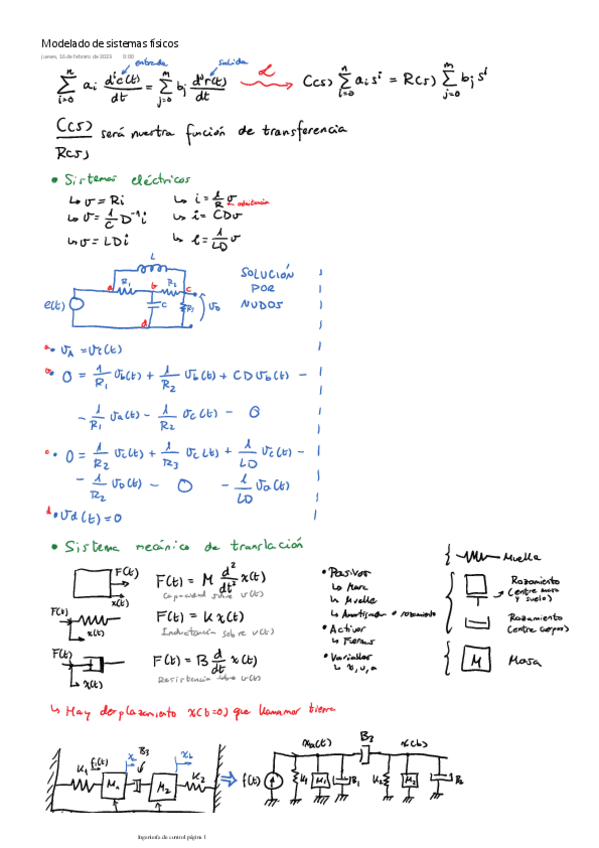 Modelado de sistemas físicos
jueves, 16 de febrero de 2023 0:00
entrada salida
∑ i=0 n ai d^i c(t)/dt = ∑ j=0 m bj d^j r(t)/dt ℒ C(s) ∑ i=0 n ai s^i = R(s) ∑ j=0 m bj s^j
C(s)/R(s) será nuestra función de transferencia
• Sistemas eléctricos
↳ v = Ri ↳ i = 1/R v
↳ v = 1/C D^-1 i ↳ i = CDv
↳ v = LDi ↳ i = 1/LD v
L
a R1 b R2 c
e(t) C R3 v0
d
SOLUCIÓN
POR
NUDOS
• vA = vi(t)
• 0 = 1/R1 vb(t) + 1/R2 vb(t) + CD vb(t) -
- 1/R1 va(t) - 1/R2 vc(t) - 0
• 0 = 1/R2 vc(t) + 1/R3 vc(t) + 1/LD vc(t) -
- 1/R2 vb(t) - 0 - 1/LD va(t)
d • vd(t) = 0
• Sistema mecánico de translación
F(t) x(t) F(t) = M d²/dt² x(t)
Capacidad sobre v(t)
F(t) x(t) F(t) = K x(t)
Inductancia sobre v(t)
F(t) x(t) F(t) = B d/dt x(t)
Resistencia sobre v(t)
• Pasivos
↳ Masa
↳ Muelle
↳ Amortiguador o rozamiento
• Activos
↳ Fuerzas
• Variables
↳ x, v, a
Muelle
Rozamiento
(entre masa
y suelo)
Rozamiento
(entre cuerpos)
M Masa
↳ Hay desplazamiento x(t)=0 que llamamos tierra
K1 f(t) M1 B3 M2 K2
⇒ f(t) xa(t) K1 M1 B1 B3 x(b) K2 M2 B2
Ingeniería de control página 1